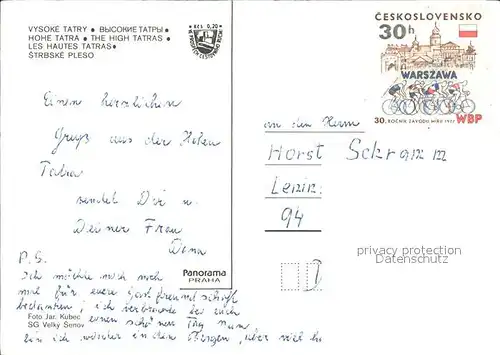 VYSOKÉ TATRY • ВЫСОКИЕ ТАТРЫ •
HOHE TATRA • THE HIGH TATRAS •
LES HAUTES TATRAS •
ŠTRBSKÉ PLESO
Kčs 0,20
ČESKOSLOVENSKO
30h
WARSZAWA
30. ROČNÍK ZÁVODU MÍRU 1977 WBP
Einen herzlichen
Gruß aus der Hohen
Tatra
sendet Dir u.
Deiner Frau
Dana
an den Herrn
Horst Schramm
94
P.S.
Ich möchte mich noch
mal für euere Gastfreundschaft
bedanken, ich verbrachte bei euch
einen schönen Tag. Nun
bin ich wieder in den Bergen, aber
Panorama
PRAHA
Foto Jar. Kubec
SG Velký Šenov
privacy protection
Datenschutz